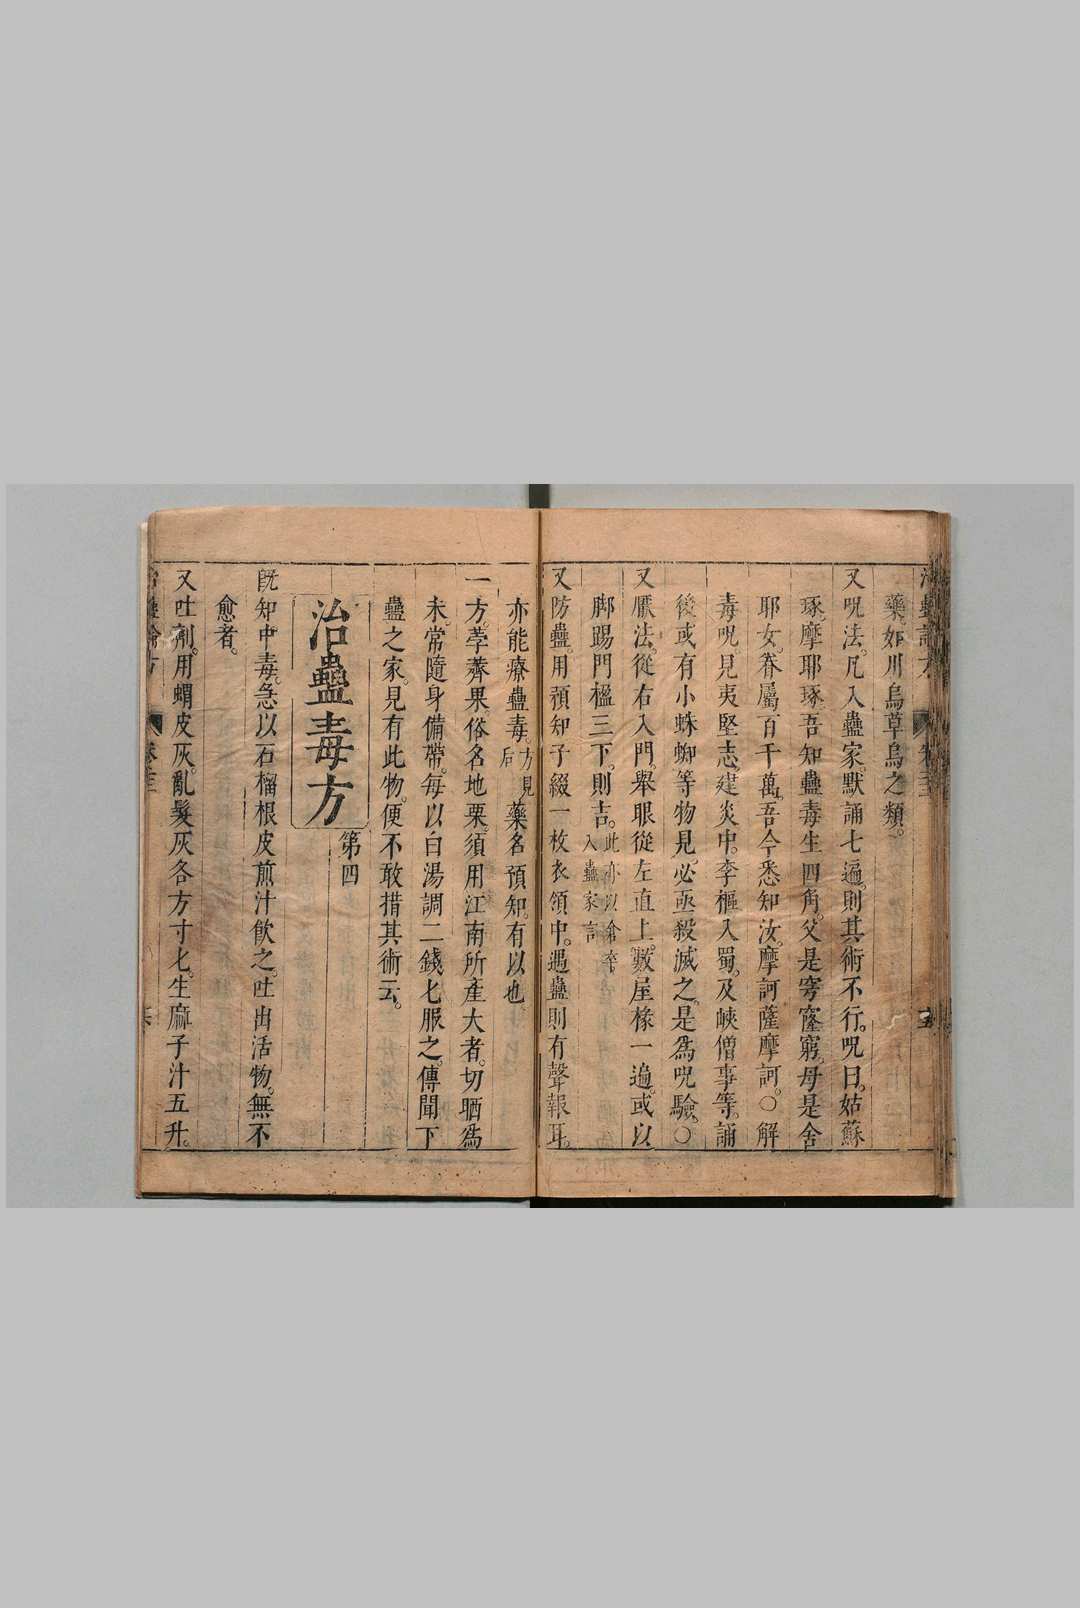 藥。如川烏草烏之類。
又呪法。凡入蠱家。默誦七遍。則其術不行。呪曰。姑蘇
琢。摩耶琢。吾知蠱毒生四角。父是穹窿窮。母是舍
耶女。眷屬百千萬。吾今悉知汝。摩訶薩摩訶。○解
毒呪。見夷堅志。建炎中。李樞入蜀。及峽僧事等。誦
後或有小蛛蜘等物見。必亟殺滅之。是爲呪驗。○
又厭法。從右入門。舉眼從左直上。數屋椽一遍。或以
脚踢門楹三下。則吉。
入蠱家言
又防蠱。用預知子綴一枚衣領中。遇蠱則有聲報耳。
亦能療蠱毒。方見后藥名預知。有以也
一方。荸薺果俗名地栗。須用江南所產大者。切晒爲
末。常隨身備帶。每以白湯調二錢匕服之。傳聞下
蠱之家。見有此物。便不敢措其術云。
治蠱毒方 第四
旣知中毒。急以石榴根皮煎汁飲之。吐出活物。無不
愈者。
又吐劑。用蝟皮灰。亂髮灰各方寸匕。生麻子汁五升。